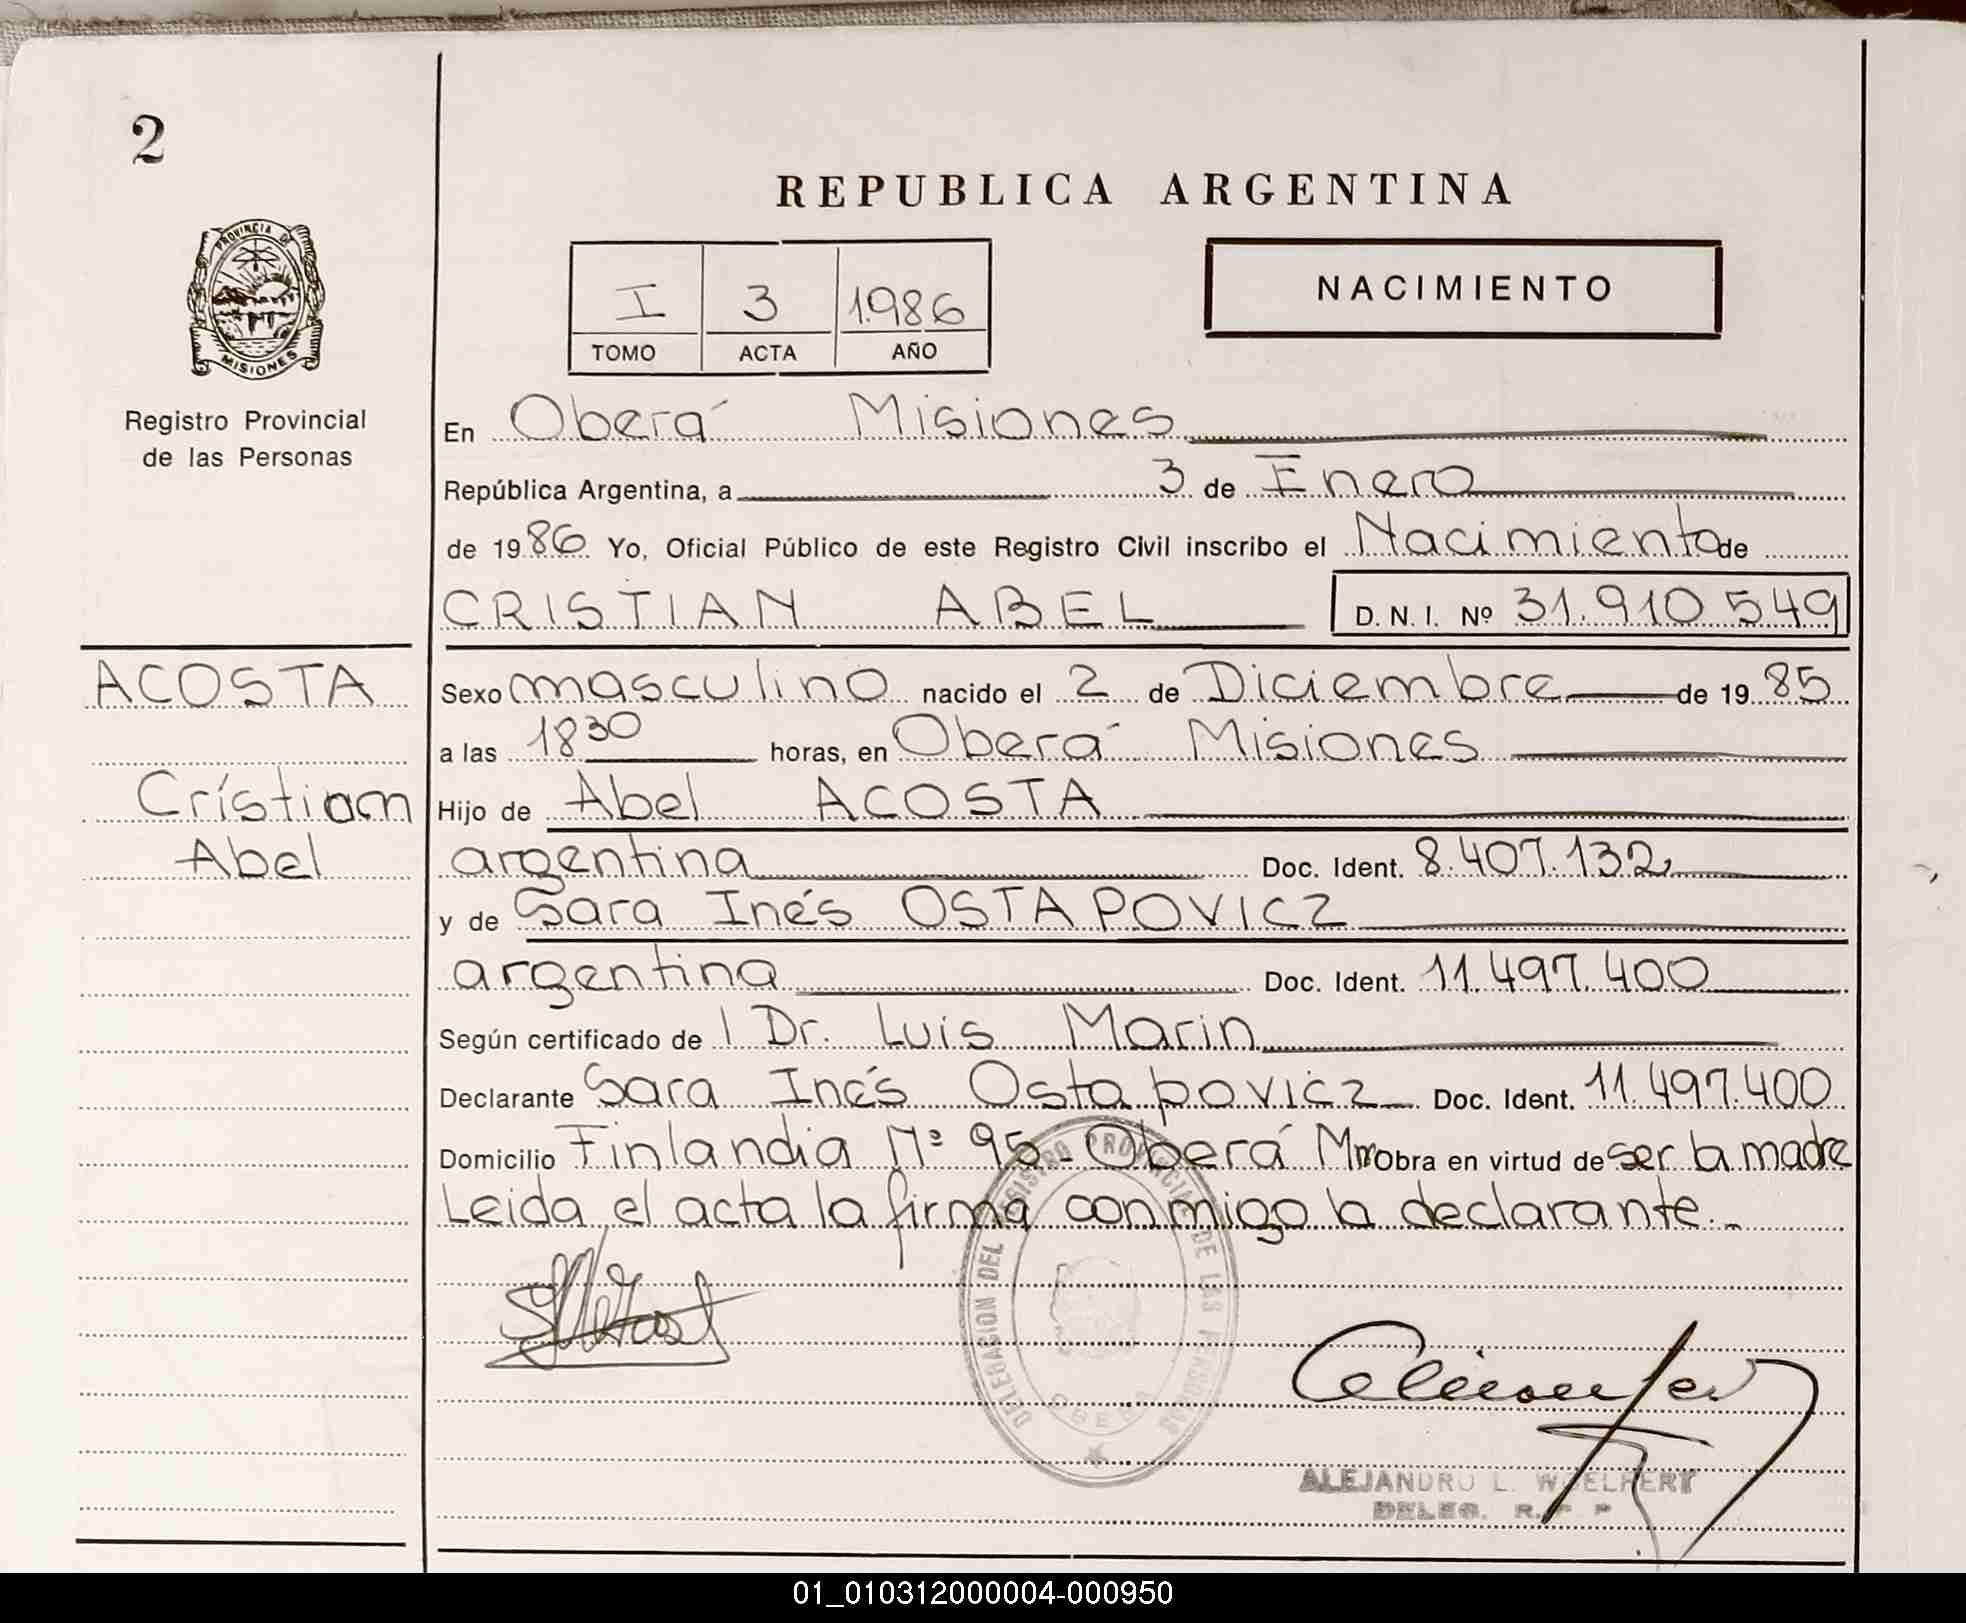 2
REPUBLICA ARGENTINA
PROVINCIA DE
MISIONES
Registro Provincial
de las Personas
I 3 1.986
TOMO ACTA AÑO
NACIMIENTO
En Oberá Misiones
República Argentina, a 3 de Enero
de 1986 Yo, Oficial Público de este Registro Civil inscribo el Nacimiento de
CRISTIAN ABEL D. N. I. Nº 31.910.549
ACOSTA
Cristian
Abel
Sexo masculino nacido el 2 de Diciembre de 1985
a las 18 30 horas, en Oberá Misiones
Hijo de Abel ACOSTA
argentina Doc. Ident. 8.407.132
y de Sara Inés OSTAPOVICZ
argentina Doc. Ident. 11.497.400
Según certificado de l Dr. Luis Marin
Declarante Sara Inés Ostapovicz Doc. Ident. 11.497.400
Domicilio Finlandia Nº 95 - Oberá Mnes Obra en virtud de ser la madre
Leida el acta la firma conmigo la declarante.-
DELEGACION DEL REGISTRO PROVINCIAL DE LAS PERSONAS
OBERA
ALEJANDRO L. WOELFERT
DELEG. R. P. P
01_010312000004-000950